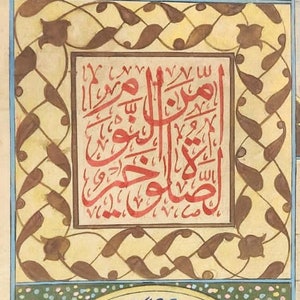 الصلوة خير من النوم